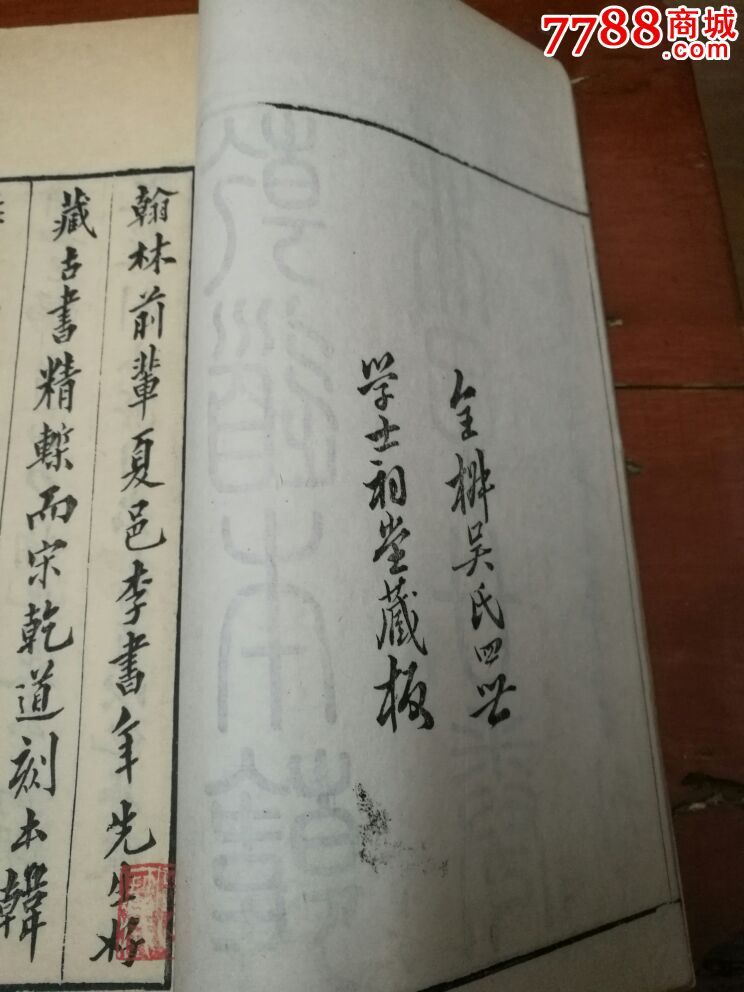 7788商城
.com
全椒吴氏四世
学士祠堂藏板
翰林前輩夏邑李書年先生好
藏古書精槧而宋乾道刻本韓